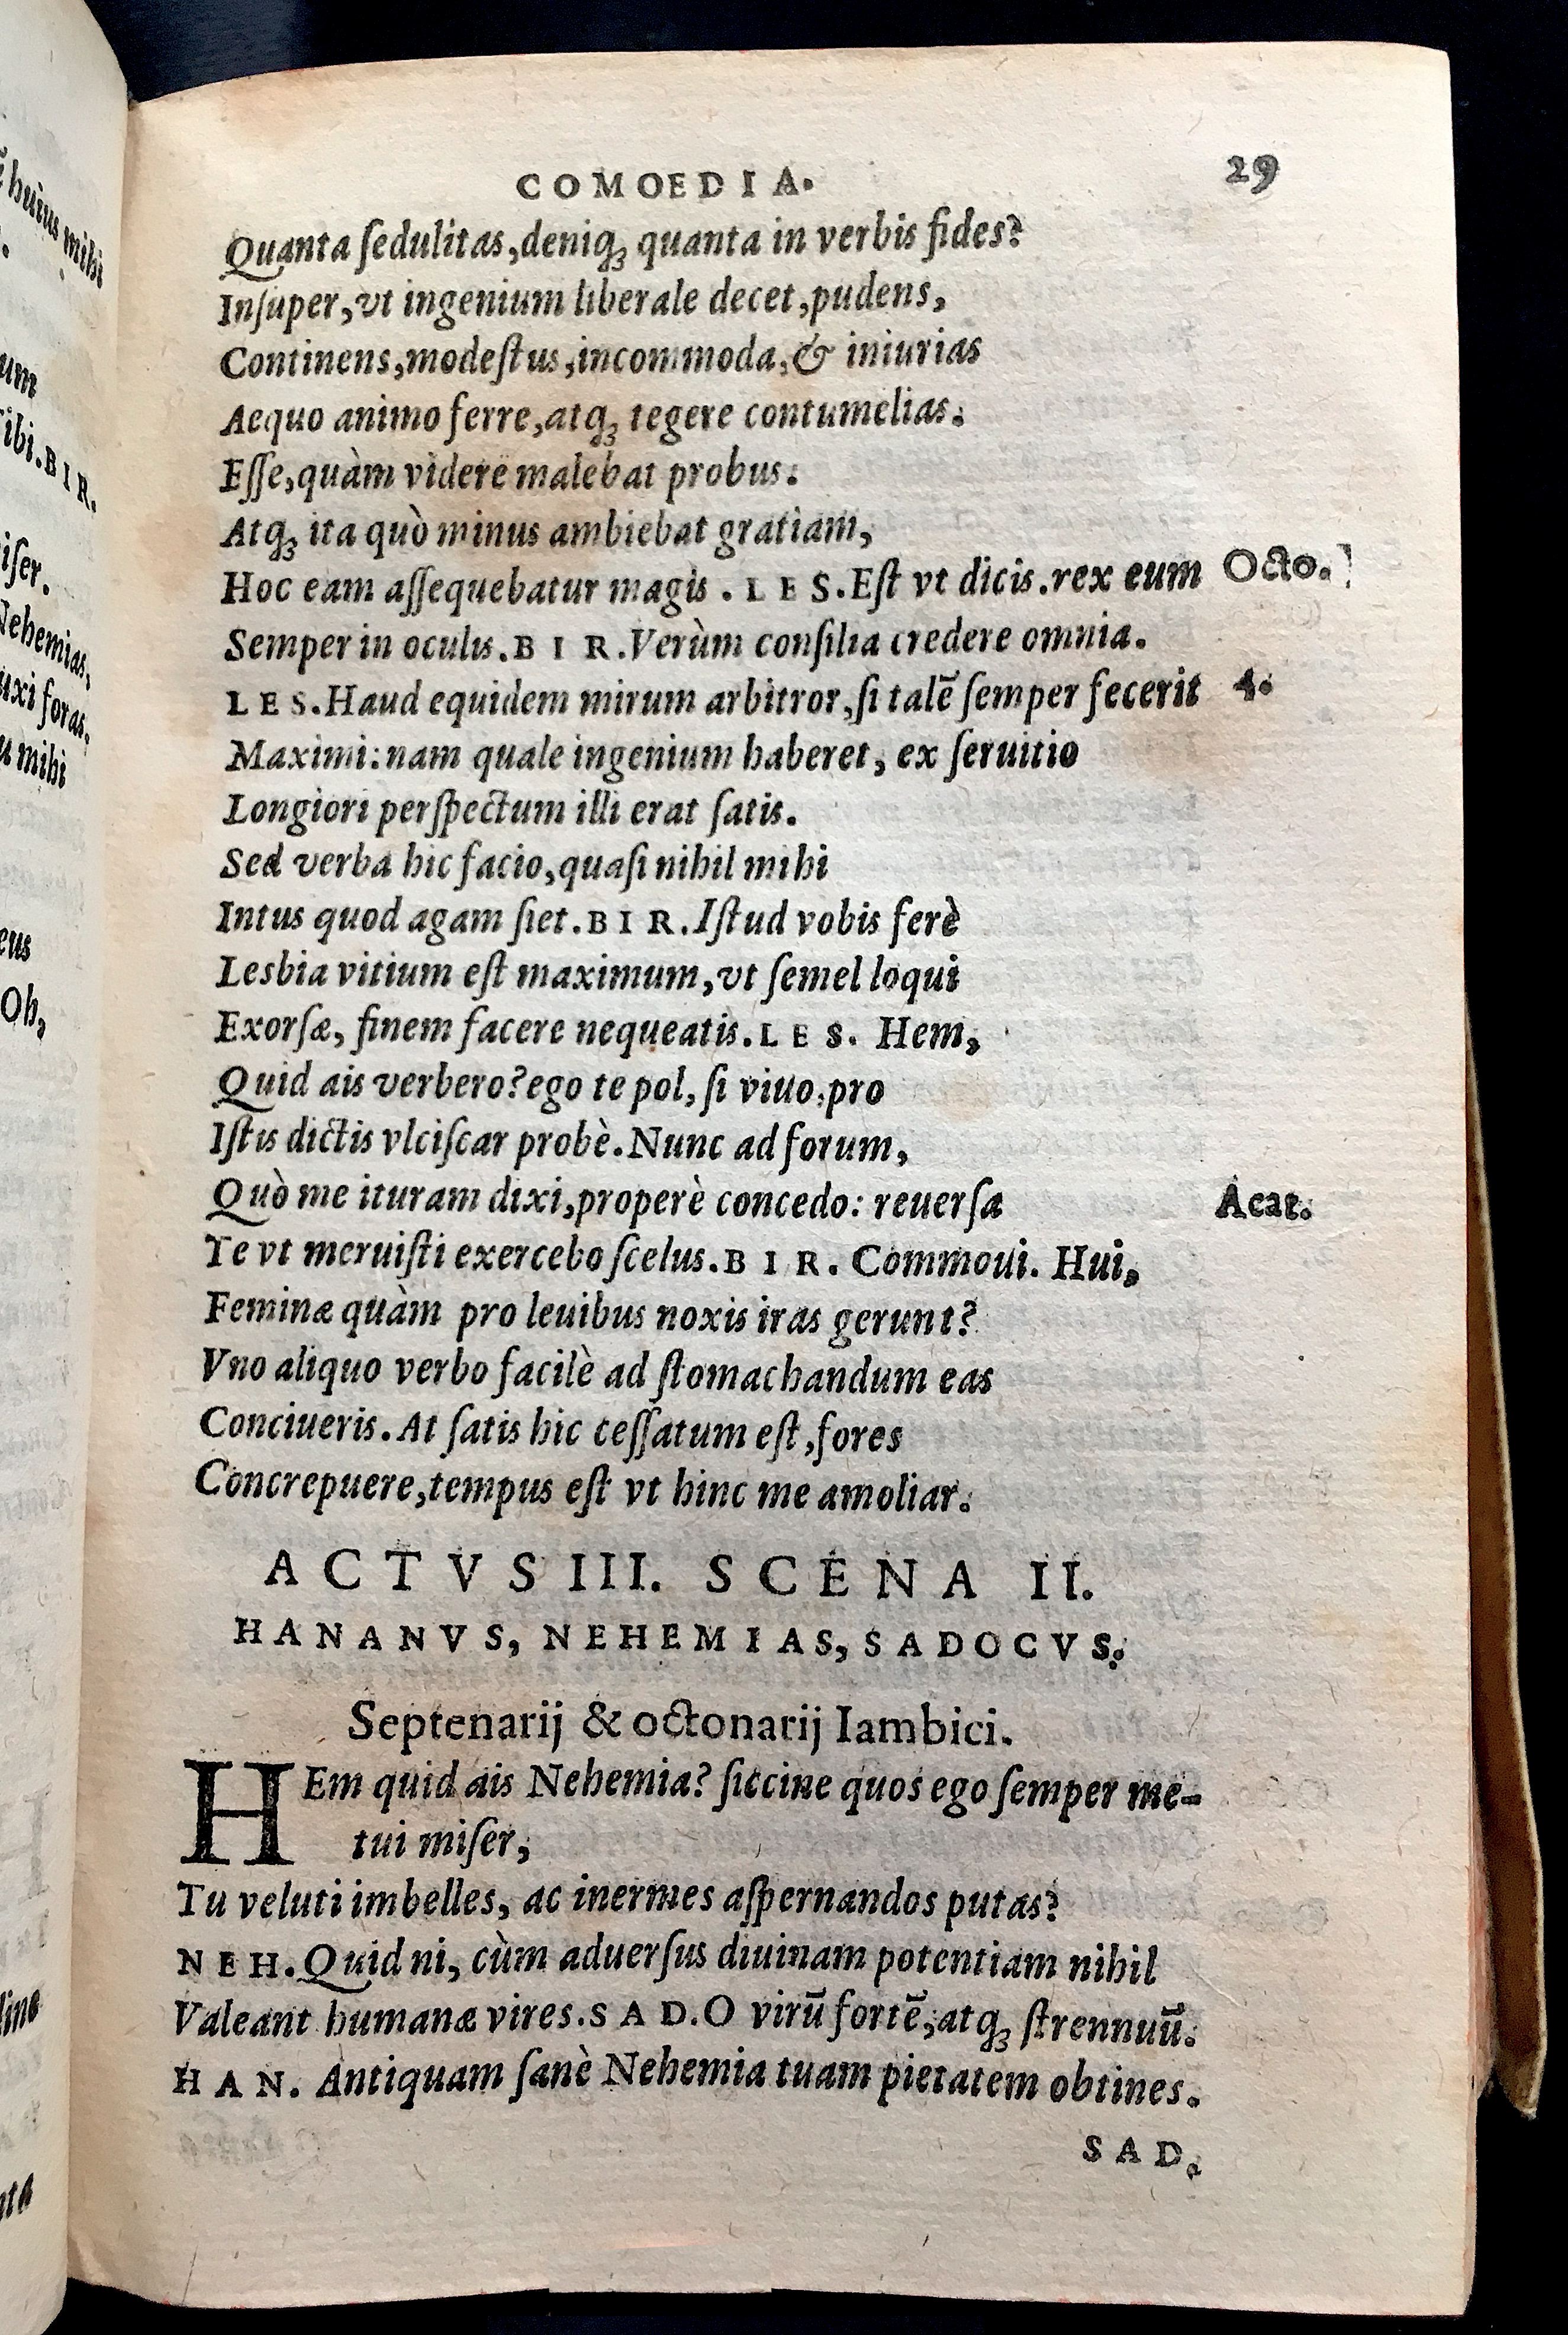 COMOEDIA. 29
Quanta ſedulitas, deniqꝫ quanta in verbis fides?
Inſuper, vt ingenium liberale decet, pudens,
Continens, modeſtus, incommoda, & iniurias
Aequo animo ferre, atqꝫ tegere contumelias:
Eſſe, quàm videre malebat probus:
Atqꝫ ita quò minus ambiebat gratiam,
Hoc eam aſſequebatur magis. LES. Eſt vt dicis. rex eum Octo.
Semper in oculis. BIR. Verùm conſilia credere omnia.
LES. Haud equidem mirum arbitror, ſi talē ſemper fecerit 4.
Maximi: nam quale ingenium haberet, ex ſeruitio
Longiori perſpectum illi erat ſatis.
Sed verba hic facio, quaſi nihil mihi
Intus quod agam ſiet. BIR. Iſtud vobis ferè
Lesbia vitium eſt maximum, vt ſemel loqui
Exorſæ, finem facere nequeatis. LES. Hem,
Quid ais verbero? ego te pol, ſi viuo, pro
Iſtis dictis vlciſcar probè. Nunc ad forum,
Quò me ituram dixi, properè concedo: reuerſa Acat.
Te vt meruiſti exercebo ſcelus. BIR. Commoui. Hui,
Feminæ quàm pro leuibus noxis iras gerunt?
Vno aliquo verbo facilè ad ſtomachandum eas
Conciueris. At ſatis hic ceſſatum eſt, fores
Concrepuere, tempus eſt vt hinc me amoliar.
ACTVS III. SCENA II.
HANANVS, NEHEMIAS, SADOCVS.
Septenarij & octonarij Iambici.
HEm quid ais Nehemia? ſiccine quos ego ſemper me-
tui miſer,
Tu veluti imbelles, ac inermes aſpernandos putas?
NEH. Quid ni, cùm aduerſus diuinam potentiam nihil
Valeant humanæ vires. SAD. O virū fortē, atqꝫ ſtrennuū.
HAN. Antiquam ſanè Nehemia tuam pietatem obtines.
SAD.